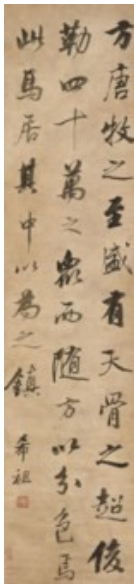 方唐牧之至盛有天骨之超俊
勒四十萬之衆而随方以分色焉
此馬居其中以為之鎮
希祖